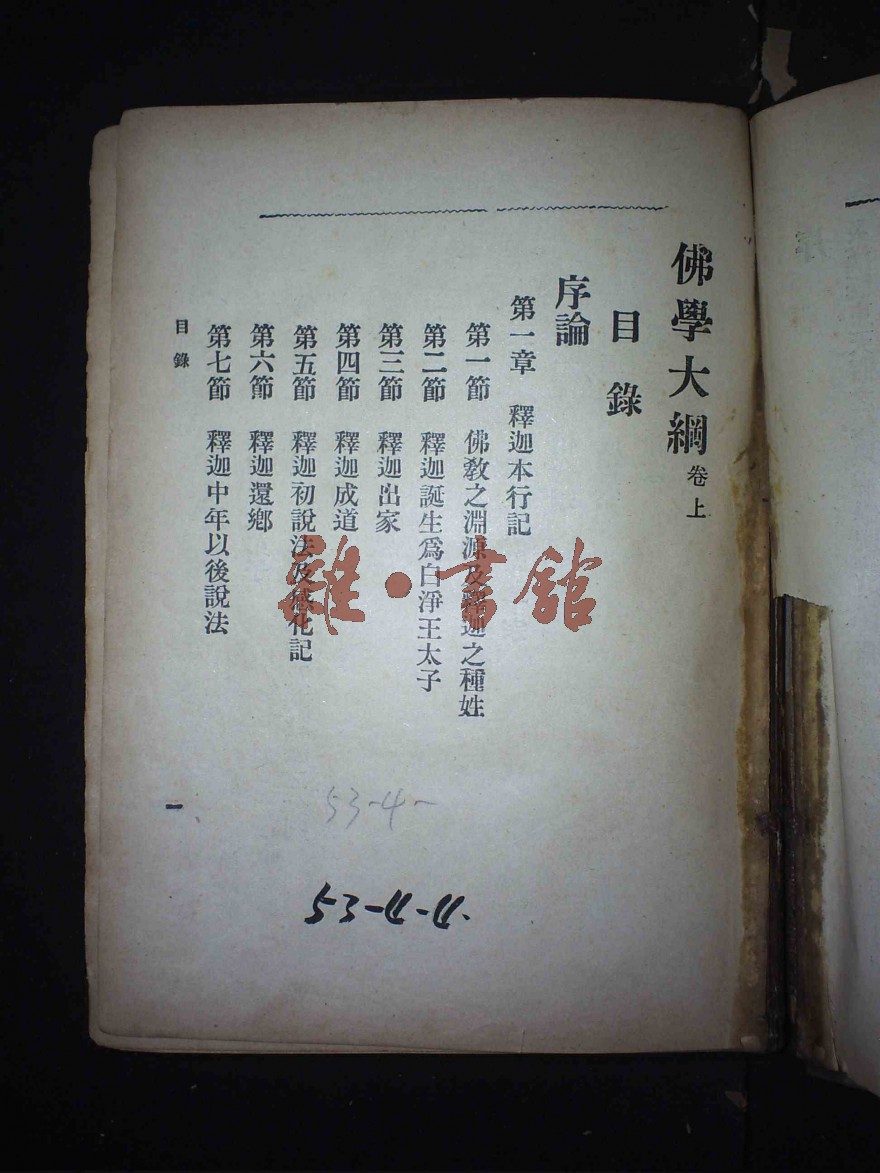 佛學大綱 卷上
目錄
序論
第一章 釋迦本行記
第一節 佛教之淵源及釋迦之種姓
第二節 釋迦誕生爲白淨王太子
第三節 釋迦出家
第四節 釋迦成道
第五節 釋迦初說法及感化記
第六節 釋迦還鄉
第七節 釋迦中年以後說法
目錄
一
53-4-
53-4-4.
雜·書館